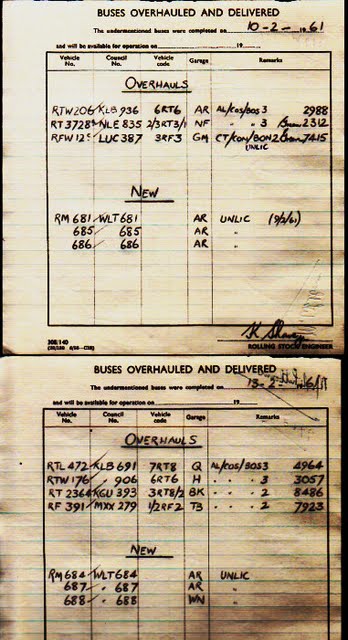 BUSES OVERHAULED AND DELIVERED
The undermentioned buses were completed on 10-2-1961
and will be available for operation on 19
Vehicle No. Council No. Vehicle code Garage Remarks
OVERHAULS
RTW 206 KLB 936 6RT6 AR AL/KOS/BOS 3 2988
RT 3728 NLE 835 2/3RT3/1 NF " " 3 2312
RFW 12 LUC 387 3RF3 GM CT/KON/BON 2 7415
UNLIC
NEW
RM 681 WLT 681 AR UNLIC (9/2/61)
685 685 AR "
686 686 AR "
308/140
ROLLING STOCK ENGINEER
BUSES OVERHAULED AND DELIVERED
The undermentioned buses were completed on 13-2-
and will be available for operation on 19
Vehicle No. Council No. Vehicle code Garage Remarks
OVERHAULS
RTL 472 KLB 691 7RT8 Q AL/KOS/BOS 3 4964
RTW 176 906 6RT6 H " " " 3 3057
RT 2364 KGU 393 3RT8/2 BK " " " 2 8486
RF 391 MXX 279 1/2RF2 TB " " " 2 7923
NEW
RM 684 WLT 684 AR UNLIC
687 " 687 AR "
688 " 688 WN "